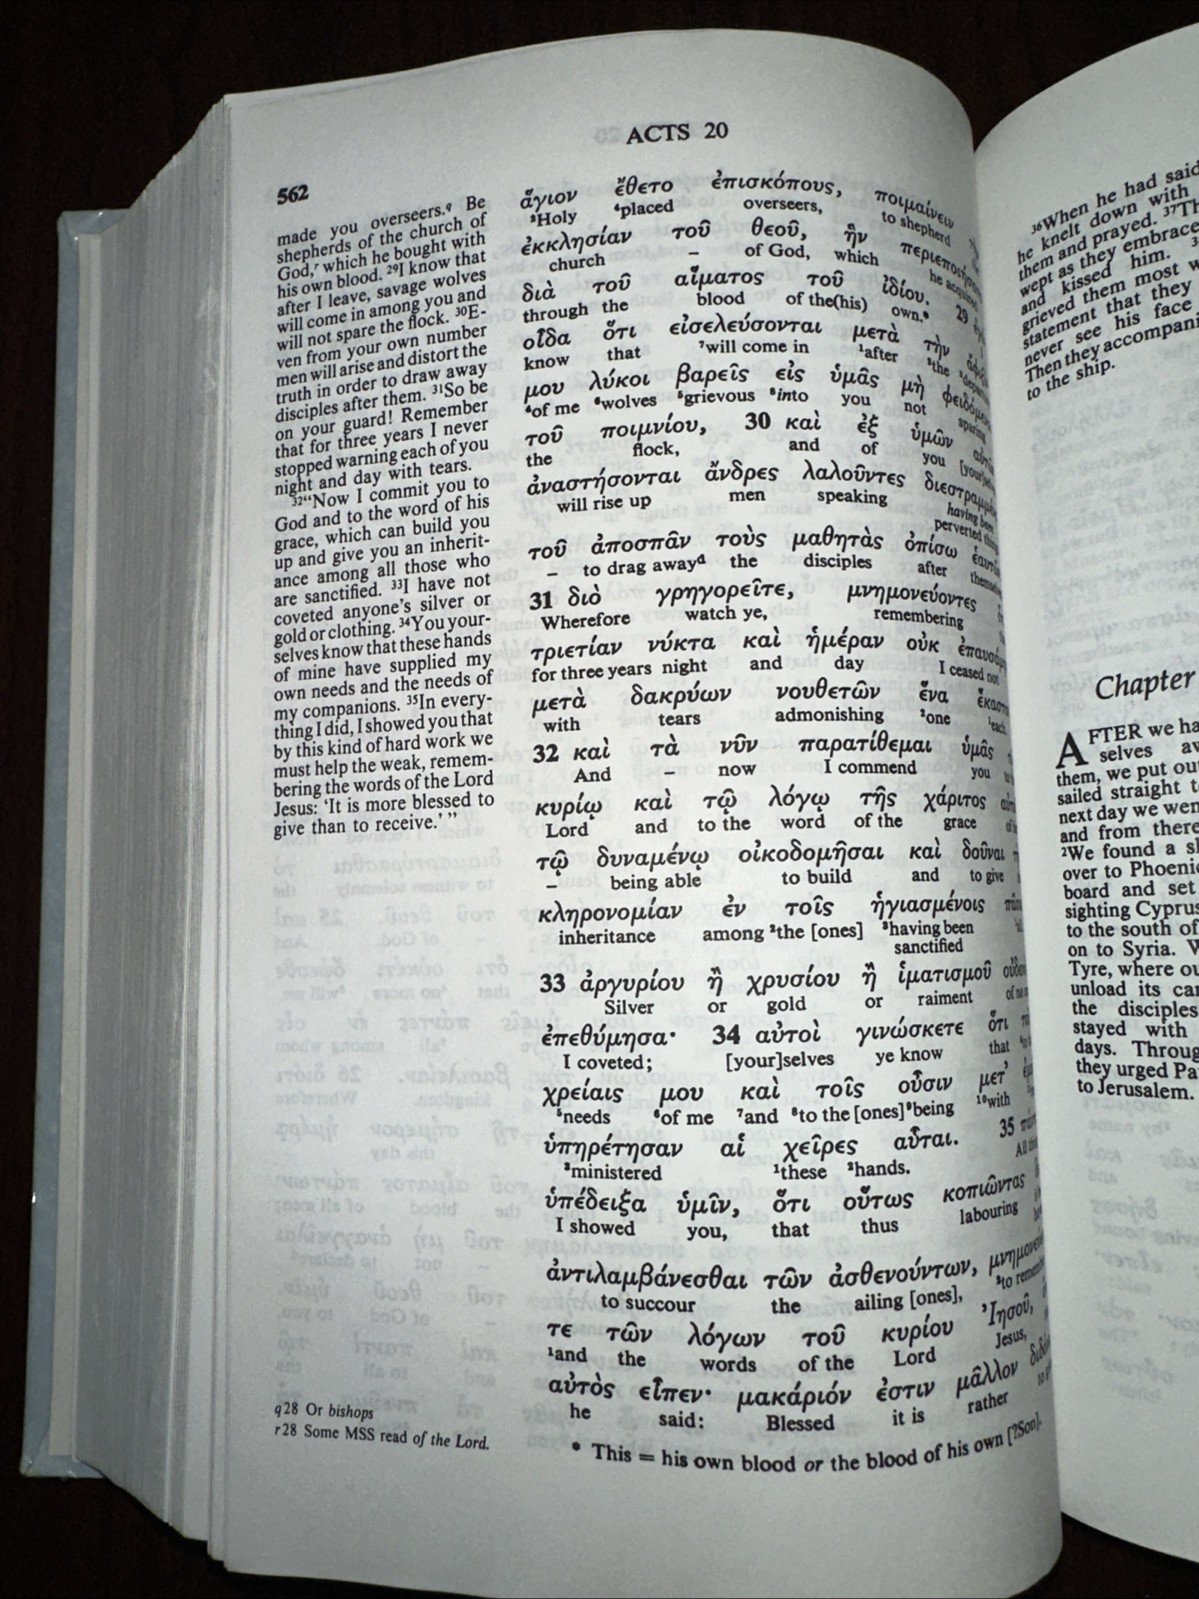 ACTS 20
562
made you overseers.q Be
shepherds of the church of
God,r which he bought with
his own blood. 29I know that
after I leave, savage wolves
will come in among you and
will not spare the flock. 30E-
ven from your own number
men will arise and distort the
truth in order to draw away
disciples after them. 31So be
on your guard! Remember
that for three years I never
stopped warning each of you
night and day with tears.
32“Now I commit you to
God and to the word of his
grace, which can build you
up and give you an inherit-
ance among all those who
are sanctified. 33I have not
coveted anyone's silver or
gold or clothing. 34You your-
selves know that these hands
of mine have supplied my
own needs and the needs of
my companions. 35In every-
thing I did, I showed you that
by this kind of hard work we
must help the weak, remem-
bering the words of the Lord
Jesus: ‘It is more blessed to
give than to receive.’ ”
q28 Or bishops
r28 Some MSS read of the Lord.
ἅγιον ἔθετο ἐπισκόπους, ποιμαίνειν
3Holy 4placed overseers, to shepherd
ἐκκλησίαν τοῦ θεοῦ, ἣν
church – of God, which he acquired
διὰ τοῦ αἵματος τοῦ ἰδίου. 29
through the blood of the(his) own.*
οἶδα ὅτι εἰσελεύσονται μετὰ τὴν
know that 7will come in 1after 2the
μου λύκοι βαρεῖς εἰς ὑμᾶς μὴ
4of me 6wolves 5grievous 8into you not sparing
τοῦ ποιμνίου, 30 καὶ ἐξ ὑμῶν
the flock, and of you
ἀναστήσονται ἄνδρες λαλοῦντες
will rise up men speaking having been
perverted things
τοῦ ἀποσπᾶν τοὺς μαθητὰς ὀπίσω
– to drag awayd the disciples after themselves
31 διὸ γρηγορεῖτε, μνημονεύοντες
Wherefore watch ye, remembering
τριετίαν νύκτα καὶ ἡμέραν οὐκ
for three years night and day I ceased not
μετὰ δακρύων νουθετῶν ἕνα
with tears admonishing 2one 1each
32 καὶ τὰ νῦν παρατίθεμαι ὑμᾶς
And – now I commend you
κυρίῳ καὶ τῷ λόγῳ τῆς χάριτος
Lord and to the word of the grace
τῷ δυναμένῳ οἰκοδομῆσαι καὶ δοῦναι
– being able to build and to give
κληρονομίαν ἐν τοῖς ἡγιασμένοις
inheritance among 2the [ones] 3having been
sanctified
33 ἀργυρίου ἢ χρυσίου ἢ ἱματισμοῦ
Silver or gold or raiment
ἐπεθύμησα· 34 αὐτοὶ γινώσκετε ὅτι
I coveted; [your]selves ye know that
χρείαις μου καὶ τοῖς οὖσιν μετ’
5needs 6of me 7and 8to the [ones] 9being 10with
ὑπηρέτησαν αἱ χεῖρες αὗται. 35
3ministered 1these 2hands. All
ὑπέδειξα ὑμῖν, ὅτι οὕτως κοπιῶντας
I showed you, that thus labouring
ἀντιλαμβάνεσθαι τῶν ἀσθενούντων,
to succour the ailing [ones], 2to remember
τε τῶν λόγων τοῦ κυρίου Ἰησοῦ,
1and the words of the Lord Jesus,
αὐτὸς εἶπεν· μακάριόν ἐστιν μᾶλλον
he said: Blessed it is rather
* This = his own blood or the blood of his own [?Son].
36When he had said
he knelt down with
them and prayed.
wept as they embrace
and kissed him.
grieved them most
statement that they
never see his face
Then they accompani
to the ship.
Chapter
AFTER we ha
selves
them, we put out
sailed straight
next day we wen
and from there
2We found a
over to Phoenic
board and set
sighting Cyprus
to the south of
on to Syria.
Tyre, where
unload its
the disciples
stayed with
days. Throug
they urged
to Jerusalem.